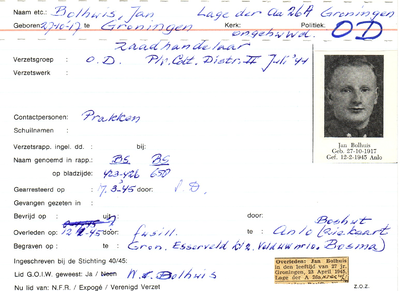 Naam etc: Bolhuis, Jan Lage der Aa 26A Groningen
Geboren: 27-10-17 te Groningen Kerk: Politiek: O D
Zaadhandelaar ongehuwd.
Verzetsgroep : O. D. Distr. II Juli '44
Verzetswerk :
Jan Bolhuis
Geb. 27-10-1917
Gef. 12-2-1945 Anlo
Contactpersonen: Prakken
Schuilnamen :
Verzetsrapp. ingel. dd. : bij:
Naam genoemd in rapp.: BS BS
op bladzijde: 423-426 650
Gearresteerd op : 7.3-45 door:
Gevangen gezeten in :
Bevrijd op : uit: door:
Overleden op : 12 45 door: fusill. te: Anlo
Begraven op : Gron. Esserveld Bosma)
Ingeschreven bij de Stichting 40/45:
Lid G.O.I.W. geweest: Ja / Neen Bolhuis
Nu lid van: N.F.R. / Expogé / Verenigd Verzet
Overleden: Jan Bolhuis
in den leeftijd van 27 jr.
Groningen, 23 April 1945.
Lage der A
Z.O.Z.